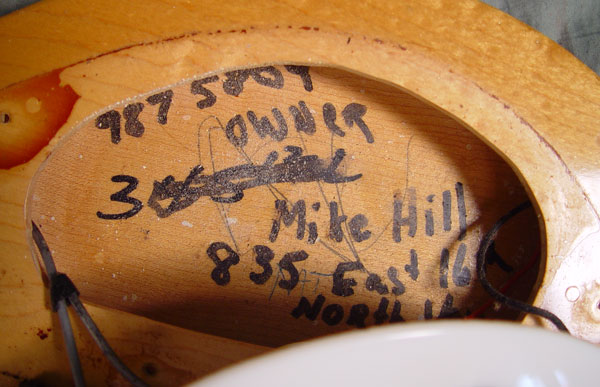 987 5809
OWNER
3
Mike Hill
835 East 16th
NORTH